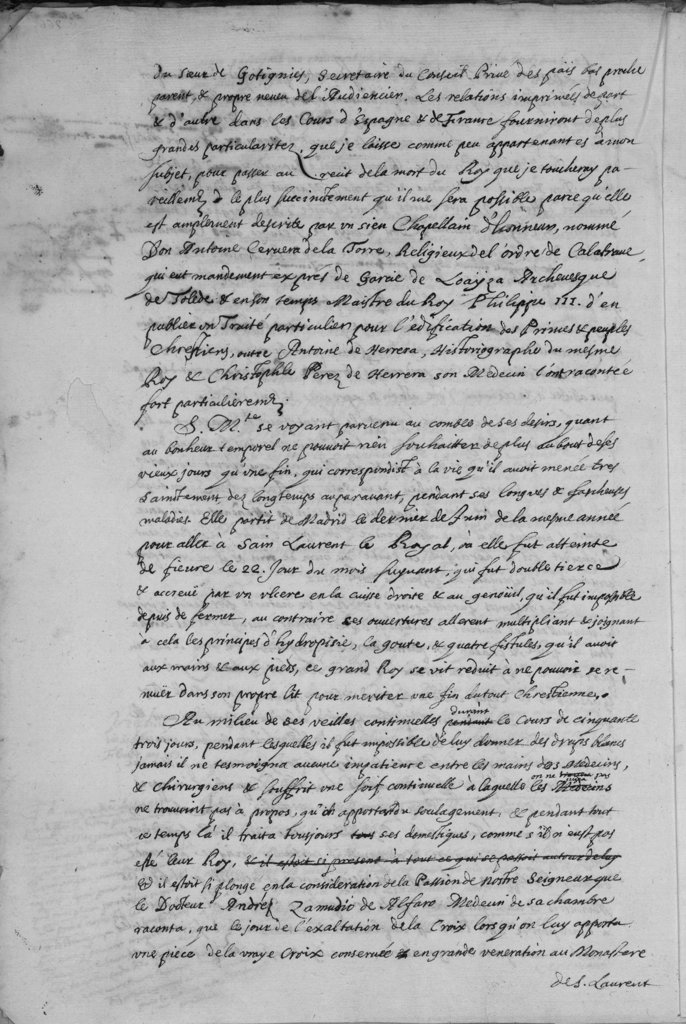 du sœur de Gotignies, Secretaire du Conseil Privé des païs bas proche
parent, & propre neveu de l'Audiencier. Les relations imprimées de part
& d'autre dans les Cours d'Espagne & de France fourniront de plus
grandes particularitez, que je laisse comme peu appartenantes à mon
subjet, pour passer au recit de la mort du Roy que je toucheray pa-
reillement, & le plus succintement qu'il me sera possible parce qu'elle
est amplement descrite par un sien Chapellain d'honneur, nommé
Don Antoine Cervera de la Torre, Religieux de l'ordre de Calatrave,
qui eut mandement exprés de Garcie de Loayza Archevesque
de Tolede & en son temps Maistre du Roy Philippe III. d'en
publier un Traité particulier pour l'édification des Princes & peuples
Chrestiens, outre Antoine de Herrera, Historiographe du mesme
Roy & Christophle Perez de Herrera son Medecin l'ont racontée
fort particulierement.
S. M.te se voyant parvenu au comble de ses desirs, quant
au bonheur temporel ne pouvoit rien souhaitter de plus au bout de ses
vieux jours qu'une fin, qui correspondist à la vie qu'il avoit menée tres
Saintement dez longtemps auparavant, pendant ses longues & fascheuses
maladies. Elle partit de Madrid le dernier de Juin de la mesme année
pour aller à Sain Laurent le Royal, où elle fut atteinte
de fievre le 22. jour du mois suyvant, qui fut double tierce
& accreuë par un ulcere en la cuisse droite & au genoüil, qu'il fut impossible
depuis de fermer, au contraire ses ouvertures allerent multipliant & joignant
à cela les principes d'hydropisie, la goute, & quatre fistules, qu'il avoit
aux mains & aux pieds, ce grand Roy se vit reduit à ne pouvoir se re-
muër dans son propre lit pour meriter une fin du tout Chrestienne.
Au milieu de ses veilles continuelles pendant durant le Cours de cinquante
trois jours, pendant lesquelles il fut impossible de luy donner des draps blancs
jamais il ne tesmoigna aucune impatience entre les mains des Medecins,
& chirurgiens & souffrit une soif continuelle à laquelle les Medecins on ne pas
ne trouvoint pas à propos, qu'on apportast du soulagement, & pendant tout
ce temps là il traita tousjours tous ses domestiques, comme s'il n'eust pas
esté leur Roy, & il estoit si present à tout ce qui se passoit autour de luy
& il estoit si plongé en la consideration de la Passion de Nostre Seigneur que
le Docteur André Zamudio de Alfaro Medecin de sa chambre
raconta, que le jour de l'exaltation de la Croix lorsqu'on luy apporta
une piece de la vraye Croix conservée en grande veneration au Monastere
de S. Laurent